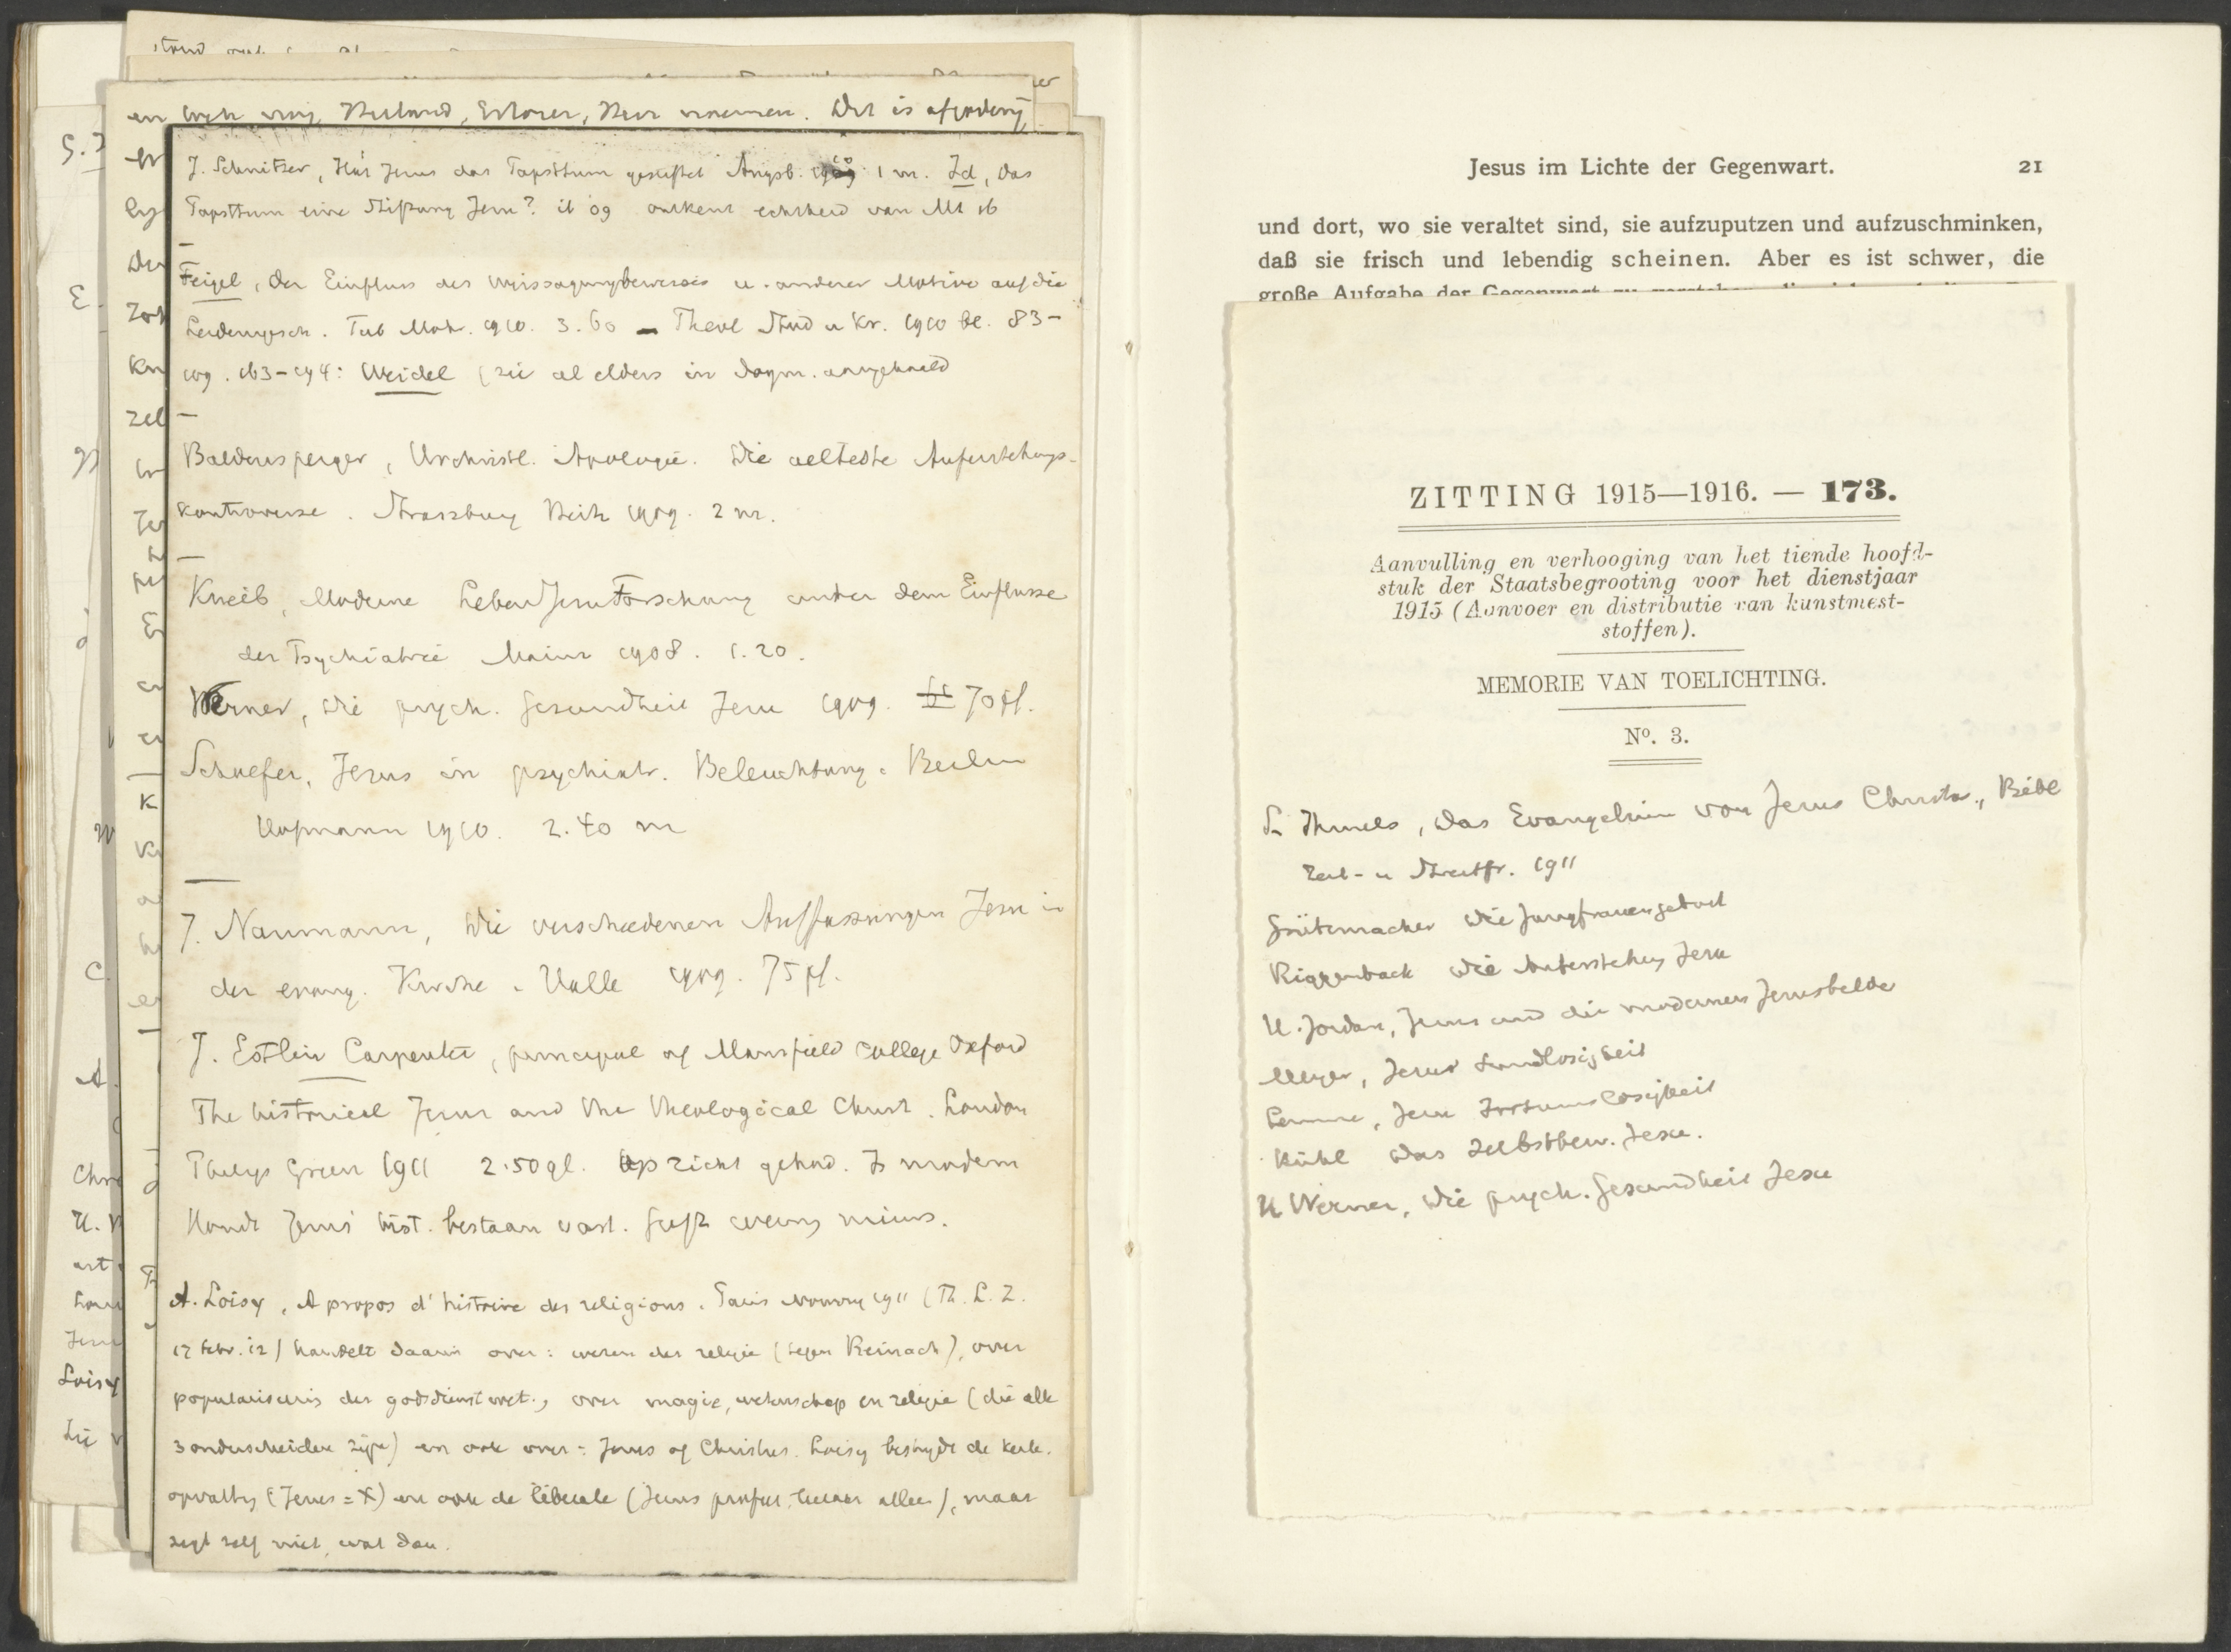 en Heiland, Erlöser, Herr noemen. Dit is afgoderij
J. Schnitzer, Hat Jesus das Papsttum gestiftet Augsb. 1910 1 m. Id, das
Papsttum eine Stiftung Jesu? ib 09 ontkent echtheid van Mt 16
Feigel, der Einfluss des Weissagungsbeweises u. anderer Motive auf die
Leidensgesch. Tub Mohr. 1910. 3.60 — Theol Stud u Kr. 1910 bl. 83-
109. 163-194: Weidel (zie al elders in dogm. aangehaald
Baldensperger, Urchristl. Apologie. Die aelteste Auferstehungs-
kontroverse. Strassburg Heitz 1909. 2 m.
Kneib, Moderne LebenJesuForschung unter dem Einflusse
der Psychiatrie Mainz 1908. 1.20.
Werner, Die psych. Gesundheit Jesu 1909. 70 pf.
Schaefer, Jesus in psychiatr. Beleuchtung. Berlin
Hofmann 1910. 2.40 m
J. Naumann, Die verschiedenen Auffassungen Jesu in
der evang. Kirche. Halle 1909. 75 pf.
J. Estlin Carpenter, principal of Mansfield College Oxford
The historical Jesus and the theological Christ. London
Philip Green 1911 2.50 gl. Op zicht gehad. Is modern
Houdt Jezus' hist. bestaan vast. Geeft weinig nieuws.
A. Loisy, A propos d'histoire des religions. Paris Nourry 1911 (Th. L. Z.
17 febr. 12) handelt daarin over: wezen der religie (tegen Reinach), over
popularisering der godsdienstwet., over magie, wetenschap en religie (die alle
3 onderscheiden zijn) en ook over: Jezus of Christus. Loisy bestrijdt de kerk.
opvatting (Jezus = X) en ook de liberale (Jezus profeet, leeraar alleen), maar
zegt zelf niet, wat dan.
Jesus im Lichte der Gegenwart. 21
und dort, wo sie veraltet sind, sie aufzuputzen und aufzuschminken,
daß sie frisch und lebendig scheinen. Aber es ist schwer, die
große Aufgabe der Gegenwart zu verstehen
ZITTING 1915—1916. — 173.
Aanvulling en verhooging van het tiende hoofd-
stuk der Staatsbegrooting voor het dienstjaar
1915 (Aanvoer en distributie van kunstmest-
stoffen).
MEMORIE VAN TOELICHTING.
No. 3.
L. Ihmels, Das Evangelium von Jesus Christus, Bibl
Zeit- u Streitfr. 1911
Grützmacher Die Jungfrauengeburt
Riggenbach Die Auferstehung Jesu
H. Jordan, Jesus und die modernen Jesusbilder
Meyer, Jesus Sündlosigkeit
Lemme, Jesu Irrtumslosigkeit
Kühl Das Selbstbew. Jesu.
H Werner, Die psych. Gesundheit Jesu